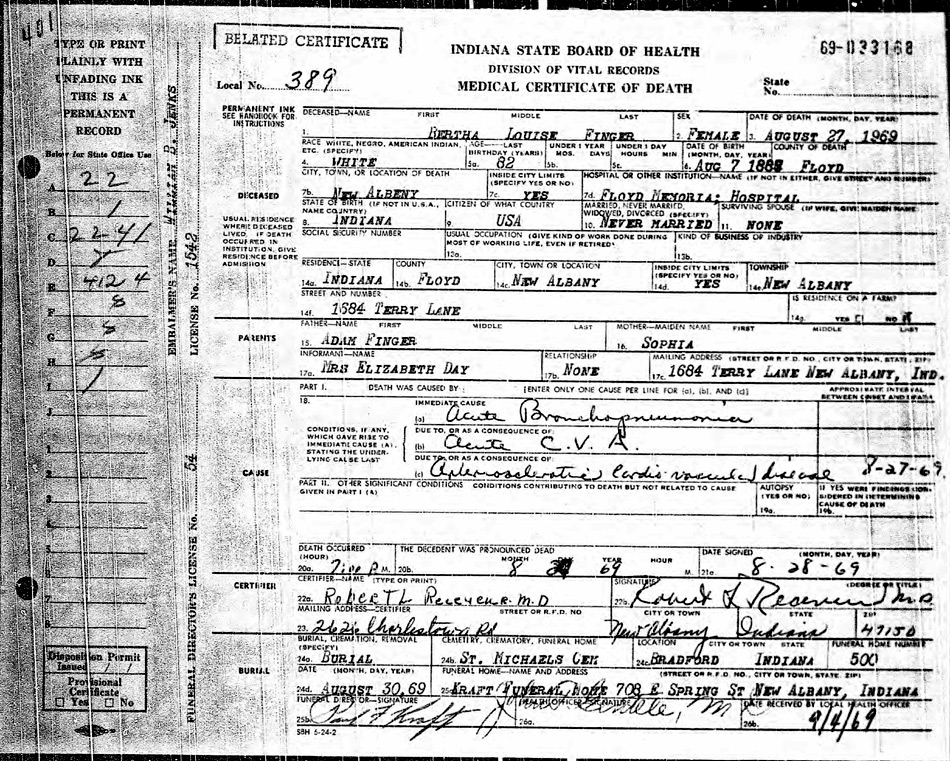 401
TYPE OR PRINT
PLAINLY WITH
UNFADING INK
THIS IS A
PERMANENT
RECORD
Below for State Office Use
A 22
B 1
C 2241
D
E 4124
F 8
G 8
H 5
I 1
J
1
2
3
4
5
6
7
8
Disposition Permit
Issued / /
Provisional
Certificate
Yes No
EMBALMER'S NAME WILLIAM B. JENKS
LICENSE No. 1542
FUNERAL DIRECTOR'S LICENSE No. 54
BELATED CERTIFICATE
INDIANA STATE BOARD OF HEALTH
DIVISION OF VITAL RECORDS
MEDICAL CERTIFICATE OF DEATH
69-033168
Local No. 389
State
No.
PERMANENT INK
SEE HANDBOOK FOR
INSTRUCTIONS
DECEASED—NAME FIRST MIDDLE LAST SEX DATE OF DEATH (MONTH, DAY, YEAR)
1. BERTHA LOUISE FINGER 2. FEMALE 3. AUGUST 27, 1969
RACE WHITE, NEGRO, AMERICAN INDIAN, ETC. (SPECIFY) AGE—LAST BIRTHDAY (YEARS) UNDER 1 YEAR MOS. DAYS UNDER 1 DAY HOURS MIN DATE OF BIRTH (MONTH, DAY, YEAR) COUNTY OF DEATH
4. WHITE 5a. 82 5b. 5c. 6. AUG 7 FLOYD
DECEASED
CITY, TOWN, OR LOCATION OF DEATH INSIDE CITY LIMITS (SPECIFY YES OR NO) HOSPITAL OR OTHER INSTITUTION—NAME (IF NOT IN EITHER, GIVE STREET AND NUMBER)
7b. NEW ALBENY 7c. YES 7d. FLOYD MEMORIAL HOSPITAL
USUAL RESIDENCE
WHERE DECEASED
LIVED. IF DEATH
OCCURRED IN
INSTITUTION, GIVE
RESIDENCE BEFORE
ADMISSION
STATE OF BIRTH (IF NOT IN U.S.A., NAME COUNTRY) CITIZEN OF WHAT COUNTRY MARRIED, NEVER MARRIED, WIDOWED, DIVORCED (SPECIFY) SURVIVING SPOUSE (IF WIFE, GIVE MAIDEN NAME)
8. INDIANA 9. USA 10. NEVER MARRIED 11. NONE
SOCIAL SECURITY NUMBER USUAL OCCUPATION (GIVE KIND OF WORK DONE DURING MOST OF WORKING LIFE, EVEN IF RETIRED) KIND OF BUSINESS OR INDUSTRY
13a. 13b.
RESIDENCE—STATE COUNTY CITY, TOWN OR LOCATION INSIDE CITY LIMITS (SPECIFY YES OR NO) TOWNSHIP
14a. INDIANA 14b. FLOYD 14c. NEW ALBANY 14d. YES 14e. NEW ALBANY
STREET AND NUMBER IS RESIDENCE ON A FARM?
14f. 1684 TERRY LANE 14g. YES NO
PARENTS
FATHER—NAME FIRST MIDDLE LAST MOTHER—MAIDEN NAME FIRST MIDDLE LAST
15. ADAM FINGER 16. SOPHIA
INFORMANT—NAME RELATIONSHIP MAILING ADDRESS (STREET OR R.F.D. NO., CITY OR TOWN, STATE, ZIP)
17a. MRS ELIZABETH DAY 17b. NONE 17c. 1684 TERRY LANE NEW ALBANY, IND.
PART I. DEATH WAS CAUSED BY: [ENTER ONLY ONE CAUSE PER LINE FOR (a), (b), AND (c)] APPROXIMATE INTERVAL BETWEEN ONSET AND DEATH
18. IMMEDIATE CAUSE
(a) Acute Bronchopneumonia
CONDITIONS, IF ANY,
WHICH GAVE RISE TO
IMMEDIATE CAUSE (A),
STATING THE UNDER-
LYING CAUSE LAST
DUE TO, OR AS A CONSEQUENCE OF:
(b) Acute C.V.A.
DUE TO, OR AS A CONSEQUENCE OF:
(c) Arteriosclerotic Cardio vascular disease 8-27-69
CAUSE
PART II. OTHER SIGNIFICANT CONDITIONS CONDITIONS CONTRIBUTING TO DEATH BUT NOT RELATED TO CAUSE GIVEN IN PART I (A) AUTOPSY (YES OR NO) IF YES WERE FINDINGS CONSIDERED IN DETERMINING CAUSE OF DEATH
19a. 19b.
DEATH OCCURRED (HOUR) THE DECEDENT WAS PRONOUNCED DEAD MONTH DAY YEAR HOUR DATE SIGNED (MONTH, DAY, YEAR)
20a. 7:00 P M. 20b. 8 69 M. 21c. 8-28-69
CERTIFIER
CERTIFIER—NAME (TYPE OR PRINT) SIGNATURE (DEGREE OR TITLE)
22a. ROBERT L M.D 22b. Robert L M.D
MAILING ADDRESS—CERTIFIER STREET OR R.F.D. NO CITY OR TOWN STATE ZIP
23. 2626 Charlestown Rd New Albany Indiana 47150
BURIAL, CREMATION, REMOVAL (SPECIFY) CEMETERY, CREMATORY, FUNERAL HOME LOCATION CITY OR TOWN STATE FUNERAL HOME NUMBER
24a. BURIAL 24b. ST. MICHAELS CEM 24c. BRADFORD INDIANA 500
BURIAL
DATE (MONTH, DAY, YEAR) FUNERAL HOME—NAME AND ADDRESS (STREET OR R.F.D. NO., CITY OR TOWN, STATE, ZIP)
24d. AUGUST 30,69 25a. KRAFT FUNERAL HOME 708 E. SPRING ST NEW ALBANY, INDIANA
FUNERAL DIRECTOR—SIGNATURE HEALTH OFFICER SIGNATURE DATE RECEIVED BY LOCAL HEALTH OFFICER
25b. Kraft 26a. 26b. 9/4/69
SBH 6-24-2